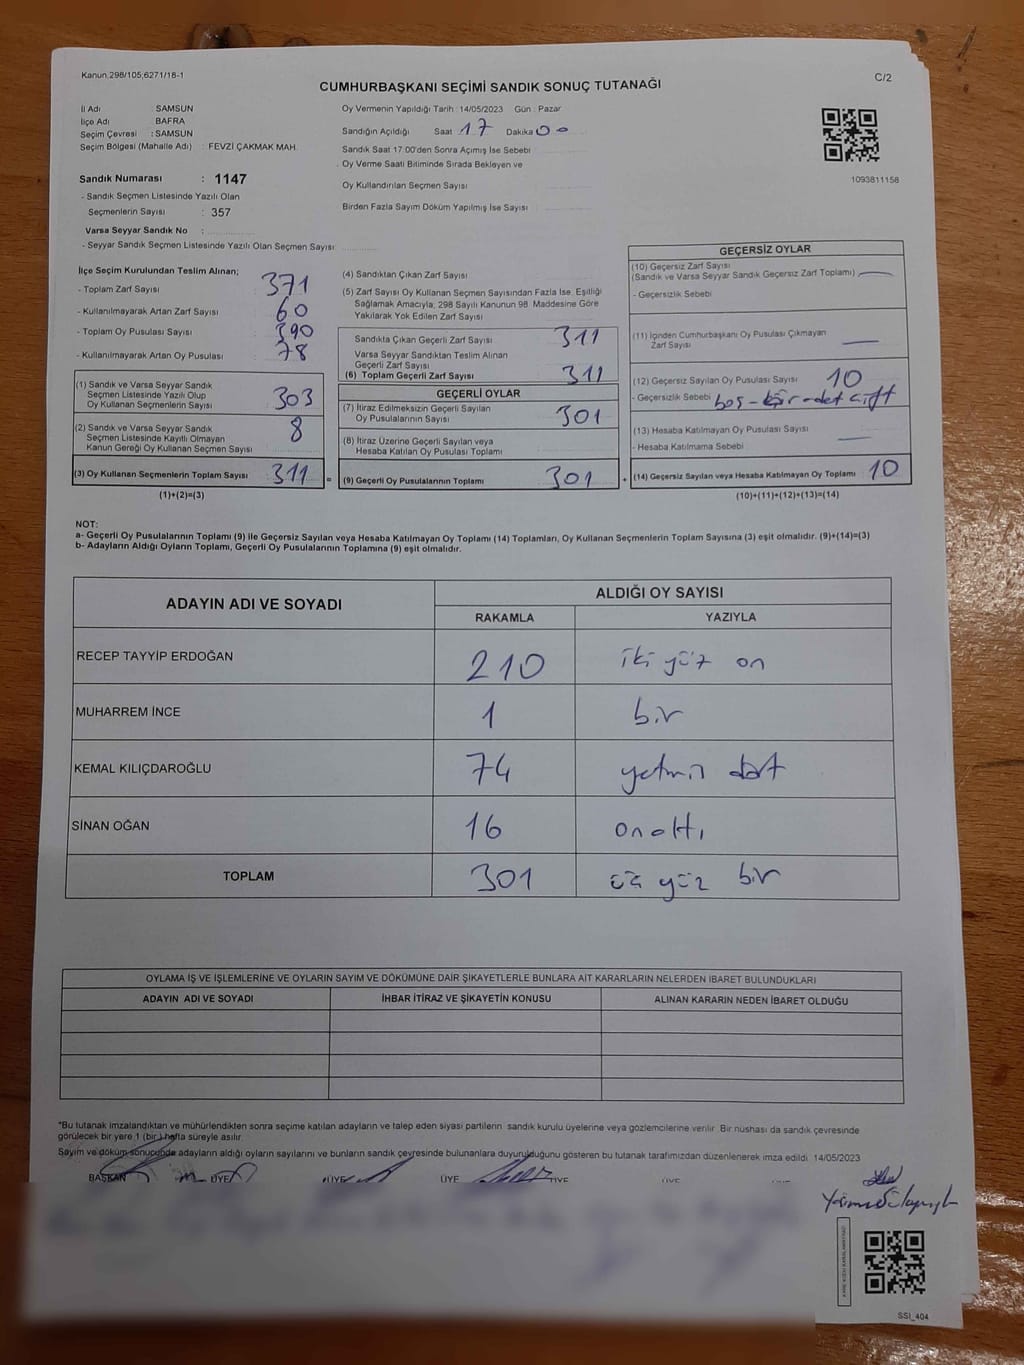 Kanun.298/105,6271/18-1
C/2
CUMHURBAŞKANI SEÇİMİ SANDIK SONUÇ TUTANAĞI
İl Adı : SAMSUN
İlçe Adı : BAFRA
Seçim Çevresi : SAMSUN
Seçim Bölgesi (Mahalle Adı) : FEVZİ ÇAKMAK MAH.
Oy Vermenin Yapıldığı Tarih : 14/05/2023 Gün : Pazar
Sandığın Açıldığı Saat 17 Dakika 00
Sandık Saat 17:00'den Sonra Açımış İse Sebebi
Oy Verme Saati Bitiminde Sırada Bekleyen ve
Oy Kullandırılan Seçmen Sayısı
Birden Fazla Sayım Döküm Yapılmış İse Sayısı
1093811158
Sandık Numarası : 1147
- Sandık Seçmen Listesinde Yazılı Olan
Seçmenlerin Sayısı : 357
Varsa Seyyar Sandık No :
- Seyyar Sandık Seçmen Listesinde Yazılı Olan Seçmen Sayısı
İlçe Seçim Kurulundan Teslim Alınan;
- Toplam Zarf Sayısı 371
- Kullanılmayarak Artan Zarf Sayısı 60
- Toplam Oy Pusulası Sayısı 390
- Kullanılmayarak Artan Oy Pusulası 78
(1) Sandık ve Varsa Seyyar Sandık
Seçmen Listesinde Yazılı Olup
Oy Kullanan Seçmenlerin Sayısı 303
(2) Sandık ve Varsa Seyyar Sandık
Seçmen Listesinde Kayıtlı Olmayan
Kanun Gereği Oy Kullanan Seçmen Sayısı 8
(3) Oy Kullanan Seçmenlerin Toplam Sayısı 311
(1)+(2)=(3)
(4) Sandıktan Çıkan Zarf Sayısı
(5) Zarf Sayısı Oy Kullanan Seçmen Sayısından Fazla İse, Eşitliği
Sağlamak Amacıyla; 298 Sayılı Kanunun 98. Maddesine Göre
Yakılarak Yok Edilen Zarf Sayısı
Sandıkta Çıkan Geçerli Zarf Sayısı 311
Varsa Seyyar Sandıktan Teslim Alınan
Geçerli Zarf Sayısı
(6) Toplam Geçerli Zarf Sayısı 311
GEÇERLİ OYLAR
(7) İtiraz Edilmeksizin Geçerli Sayılan
Oy Pusulalarının Sayısı 301
(8) İtiraz Üzerine Geçerli Sayılan veya
Hesaba Katılan Oy Pusulası Toplamı
= (9) Geçerli Oy Pusulalarının Toplamı 301 +
GEÇERSİZ OYLAR
(10) Geçersiz Zarf Sayısı
(Sandık ve Varsa Seyyar Sandık Geçersiz Zarf Toplamı) —
- Geçersizlik Sebebi
(11) İçinden Cumhurbaşkanı Oy Pusulası Çıkmayan
Zarf Sayısı —
(12) Geçersiz Sayılan Oy Pusulası Sayısı 10
- Geçersizlik Sebebi boş - bir adet çift
(13) Hesaba Katılmayan Oy Pusulası Sayısı —
- Hesaba Katılmama Sebebi
(14) Geçersiz Sayılan veya Hesaba Katılmayan Oy Toplamı 10
(10)+(11)+(12)+(13)=(14)
NOT:
a- Geçerli Oy Pusulalarının Toplamı (9) ile Geçersiz Sayılan veya Hesaba Katılmayan Oy Toplamı (14) Toplamları, Oy Kullanan Seçmenlerin Toplam Sayısına (3) eşit olmalıdır. (9)+(14)=(3)
b- Adayların Aldığı Oyların Toplamı, Geçerli Oy Pusulalarının Toplamına (9) eşit olmalıdır.
ADAYIN ADI VE SOYADI
ALDIĞI OY SAYISI
RAKAMLA YAZIYLA
RECEP TAYYİP ERDOĞAN 210 iki yüz on
MUHARREM İNCE 1 bir
KEMAL KILIÇDAROĞLU 74 yetmiş dört
SİNAN OĞAN 16 onaltı
TOPLAM 301 üç yüz bir
OYLAMA İŞ VE İŞLEMLERİNE VE OYLARIN SAYIM VE DÖKÜMÜNE DAİR ŞİKAYETLERLE BUNLARA AİT KARARLARIN NELERDEN İBARET BULUNDUKLARI
ADAYIN ADI VE SOYADI İHBAR İTİRAZ VE ŞİKAYETİN KONUSU ALINAN KARARIN NEDEN İBARET OLDUĞU
*Bu tutanak imzalandıktan ve mühürlendikten sonra seçime katılan adayların ve talep eden siyasi partilerin sandık kurulu üyelerine veya gözlemcilerine verilir. Bir nüshası da sandık çevresinde
görülecek bir yere 1 (bir) hafta süreyle asılır.
Sayım ve döküm sonucunda adayların aldığı oyların sayılarını ve bunların sandık çevresinde bulunanlara duyurulduğunu gösteren bu tutanak tarafımızdan düzenlenerek imza edildi. 14/05/2023
BAŞKAN ÜYE ÜYE ÜYE ÜYE ÜYE
SSI_404